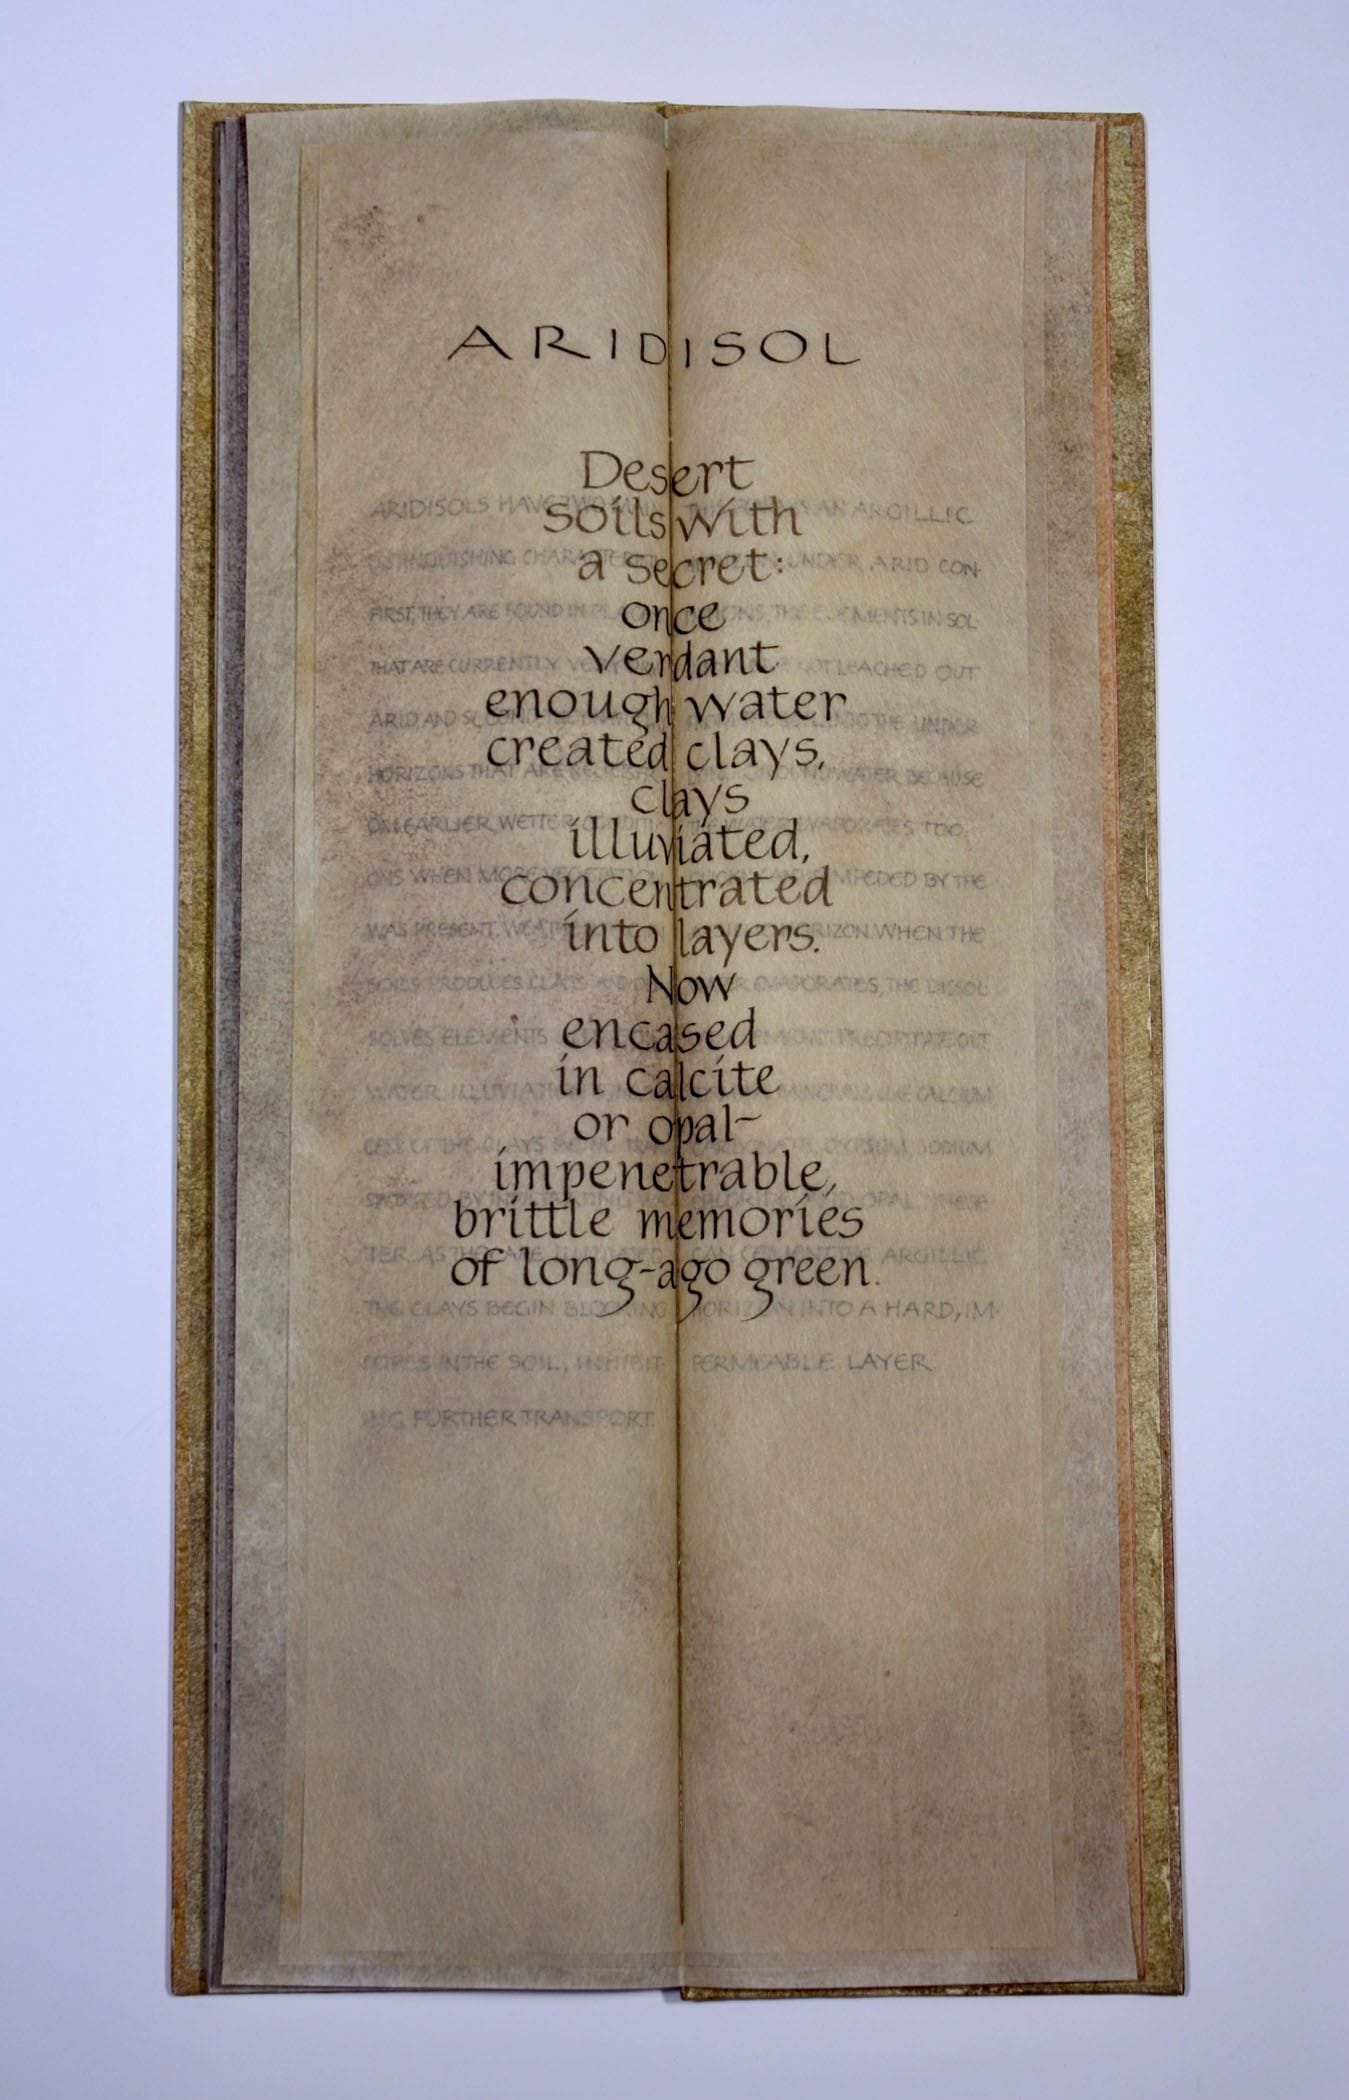 ARIDISOL
Desert
soils with
a secret:
once
verdant
enough water
created clays,
clays
illuviated,
concentrated
into layers.
Now
encased
in calcite
or opal–
impenetrable,
brittle memories
of long-ago green.
ARIDISOLS HAVE TWO
DISTINGUISHING
FIRST, THEY ARE FOUND IN
THAT ARE CURRENTLY
ARID AND
HORIZONS THAT ARE
ON EARLIER WETTER
ONS WHEN MORE
WAS PRESENT.
SOILS PRODUCES CLAYS AND
SOLVES ELEMENTS
WATER ILLUVIATION
OF THE CLAYS
TER. AS THE
THE CLAYS BEGIN BLOCKING
PORES IN THE SOIL, INHIBIT-
ING FURTHER TRANSPORT.
IS AN ARGILLIC
UNDER ARID CON-
THE ELEMENTS IN SOL-
NOT LEACHED OUT
INTO THE UNDER-
GROUNDWATER BECAUSE
THE WATER EVAPORATES TOO
IMPEDED BY THE
HORIZON. WHEN THE
EVAPORATES, THE DISSOL-
PRECIPITATE OUT
MINERALS LIKE CALCIUM
GYPSUM, SODIUM
AND OPAL. THESE
CAN CEMENT THE ARGILLIC
HORIZON INTO A HARD, IM-
PERMEABLE LAYER